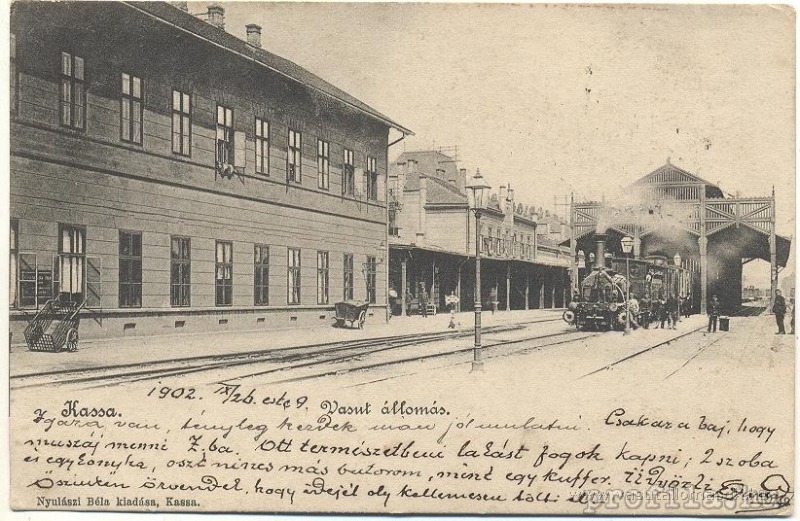 1902. IX/26. este 9.
Kassa. Vasut állomás.
Igaza van, tényleg kezdek már jól mulatni. Csakaz a baj, hogy
muszáj menni Z.ba. Ott természetbeni lakást fogok kapni; 2 szoba
és egy konyha, oszt nincs más butorom, mint egy kuffer. Üdvözli
Őszintén örvendek, hogy idejét oly kellemesen tölti
Nyulászi Béla kiadása, Kassa.